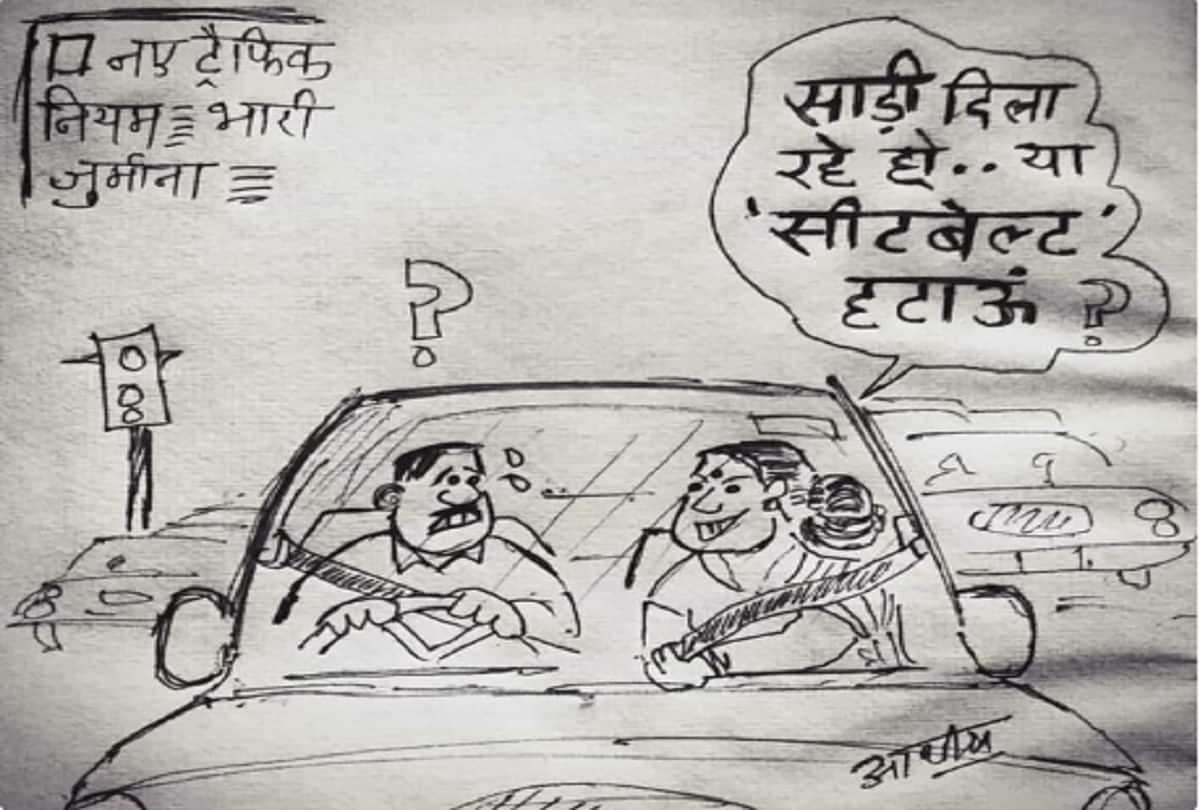 नए ट्रैफिक
नियम भारी
जुर्माना
साड़ी दिला
रहे हो.. या
'सीटबेल्ट'
हटाऊं ?
?